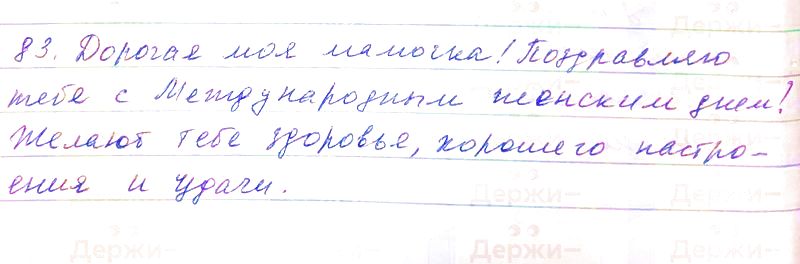 83. Дорогая моя мамочка! Поздравляю
тебя с Международным женским днем!
Желают тебе здоровья, хорошего настро-
ения и удачи.
Держи-
Держи-
Держи-
Держи-
Держи-
Держи-